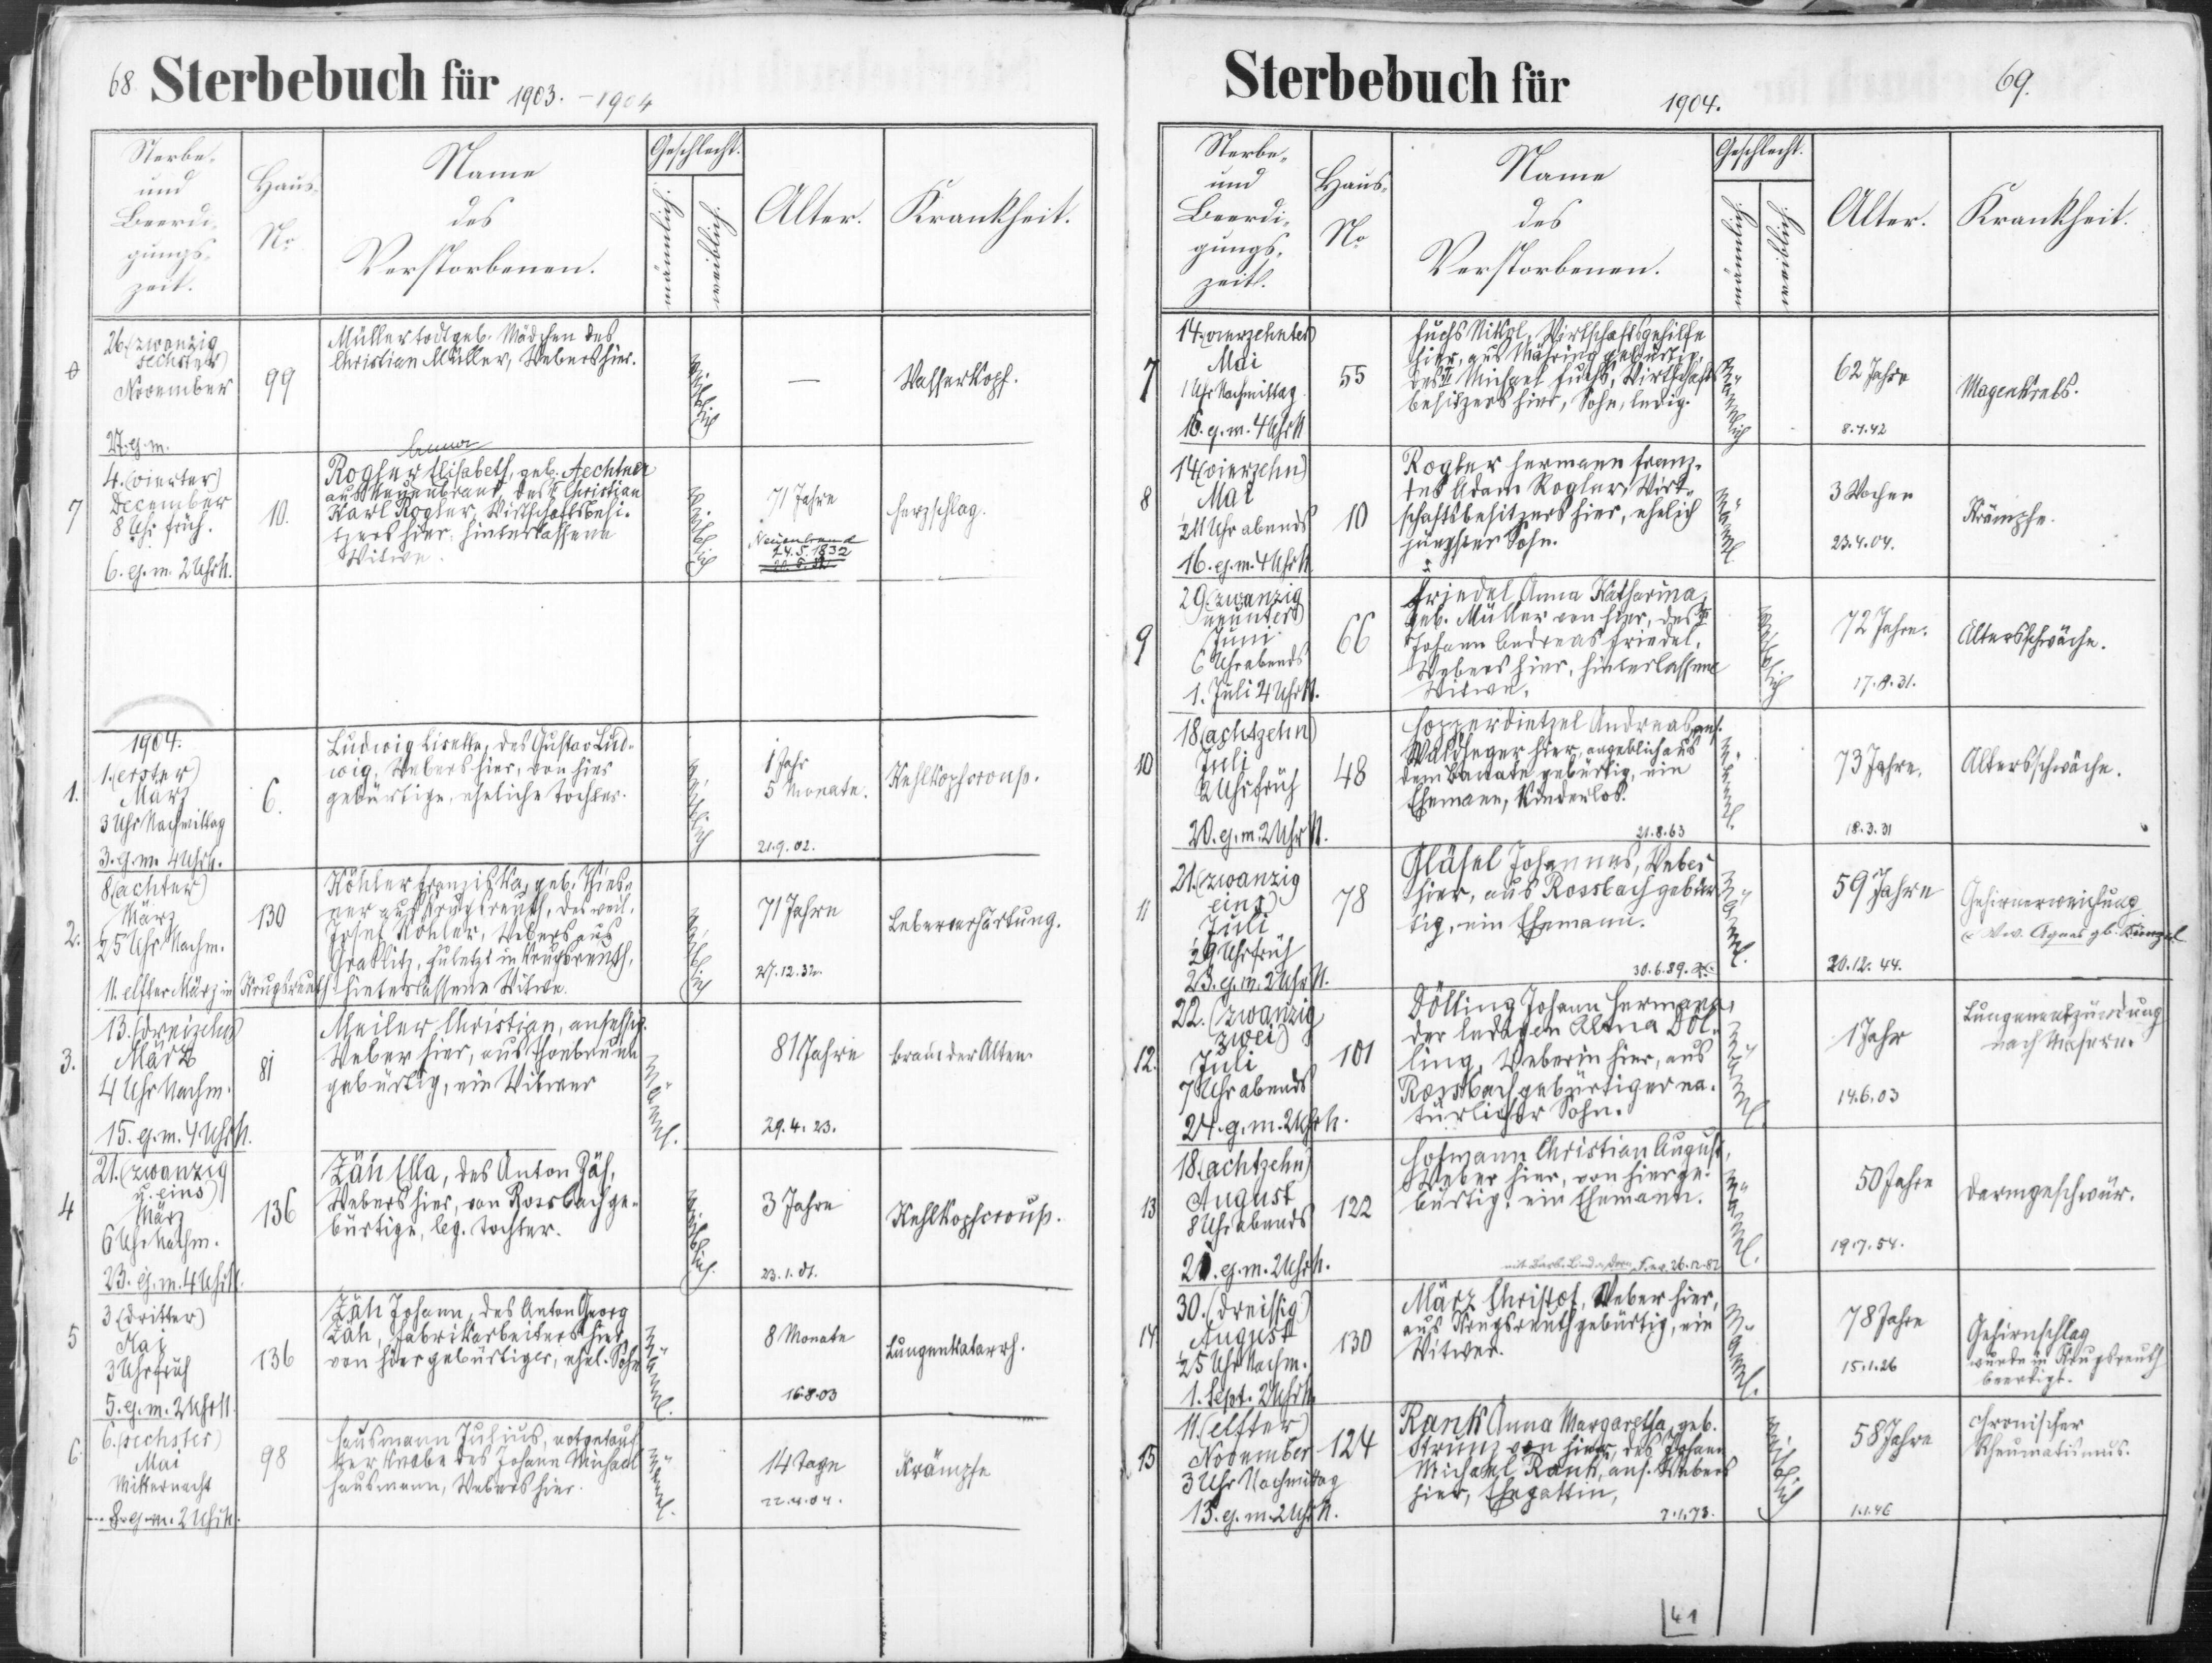 68. Sterbebuch für 1903. - 1904
Sterbe-
und
Beerdi-
gungs-
zeit.
Haus-
No
Name
des
Verstorbenen.
Geschlecht.
männlich.
weiblich.
Alter.
Krankheit.
0
26. (zwanzig
sechster)
November
27. g. m.
99
Müller todtgeb. Mädchen des
Christian Müller, Webers hier.
weiblich
—
Wasserkopf.
7
4. (vierter)
December
8 Uhr früh.
6. g. m. 2 Uhr N.
10.
Rogler Elisabeth, geb. Aechtner
aus Neuenbrand, des † Christian
Karl Rogler, Wirthschaftsbesi-
tzers hier, hinterlassene
Witwe.
weiblich
71 Jahre
Neuenbrand
24.5.1832
Herzschlag.
1904.
1.
1. (erster)
März
3 Uhr Nachmittag
3. g. m. 4 Uhr N.
6.
Ludwig Lisette, des Gustav Lud-
wig, Webers hier, von hier
gebürtige, eheliche Tochter.
weiblich
1 Jahr
5 Monate.
21.9.02.
Kehlkopfcroup.
2.
8. (achter)
März
½5 Uhr Nachm.
11. elfter März in Krugsreuth
130
Köhler Franziska, geb.
ner aus Krugsreuth, des weil.
Josef Köhler, Webers aus
Graslitz, zuletzt in Krugsreuth,
hinterlassene Witwe.
weiblich
71 Jahre
27.12.32.
Leberverhärtung.
3.
13. (dreizehn)
März
4 Uhr Nachm.
15. g. m. 4 Uhr N.
81
Meiler Christian, ansässig.
Weber hier, aus Thonbrunn
gebürtig, ein Witwer
männl.
81 Jahre
29.4.23.
Brand der Alten.
4
21. (zwanzig
u. eins)
März
6 Uhr Nachm.
23. g. m. 4 Uhr N.
136
Zäh Ella, des Anton Zäh,
Webers hier, von Rossbach ge-
bürtige, leg. Tochter.
weiblich.
3 Jahre
23.1.01.
Kehlkopfcroup.
5
3 (dritter)
Mai
3 Uhr früh
5. g. m. 2 Uhr N.
136
Zäh Johann, des Anton Georg
Zäh, Fabrikarbeiters hier,
von hier gebürtiger, ehel. Sohn
männl.
8 Monate
16.8.03
Lungenkatarrh.
6.
6. (sechster)
Mai
Mitternacht
8. g. m. 2 Uhr N.
98
Hausmann Julius, notgetauf-
ter Knabe des Johann Michael
Hausmann, Webers hier.
männl.
14 Tage
22.4.04.
Krämpfe
Sterbebuch für 1904. 69.
Sterbe-
und
Beerdi-
gungs-
zeit.
Haus-
No
Name
des
Verstorbenen.
Geschlecht.
männlich.
weiblich.
Alter.
Krankheit.
7
14. (vierzehnter)
Mai
1 Uhr Nachmittag
16. g. m. 4 Uhr N
55
Fuchs Nikol, Wirtschaftsgehilfe
hier, aus Mähring gebürtig,
des † Michael Fuchs, Wirthschafts
besitzers hier, Sohn, ledig.
männlich
62 Jahre
8.4.42
Magenkrebs.
8
14 (vierzehn)
Mai
½11 Uhr abends
16. g. m. 4 Uhr N.
10
Rogler Hermann Franz,
des Adam Rogler, Wirt-
schaftsbesitzers hier, ehelich
jüngster Sohn.
männl
3 Wochen
23.4.04.
Krämpfe.
9
29 (zwanzig
neunter)
Juni
6 Uhr abends
1. Juli 4 Uhr N.
66
Friedel Anna Katharina,
geb. Müller von hier, des †
Johann Andreas Friedel,
Webers hier, hinterlassene
Witwe.
weiblich
72 Jahre.
17.8.31.
Altersschwäche.
10
18 (achtzehn)
Juli
2 Uhr früh
20. g. m. 2 Uhr N.
48
Hopperdietzel Andreas, ans.
Waldheger hier, angeblich aus
dem Banate gebürtig, ein
Ehemann, kinderlos.
21.8.63
männl.
73 Jahre.
18.3.31
Altersschwäche.
11
21. (zwanzig
eins)
Juli
½9 Uhr früh
23. g. m. 2 Uhr N.
78
Gläsel Johannes, Weber
hier, aus Rossbach gebür-
tig, ein Ehemann.
30.6.89.
männl.
59 Jahre
20.12.44.
Gehirnerweichung
Ww. Agnes gb. Künzel
12.
22. (zwanzig
zwei)
Juli
7 Uhr abends
24. g. m. 2 Uhr N.
101
Dölling Johann Hermann,
der ledigen Alma Döl-
ling, Weberin hier, aus
Rossbach gebürtiger na-
türlicher Sohn.
männl.
1 Jahr
14.6.03
Lungenentzündung
nach Masern.
13
18. (achtzehn)
August
8 Uhr abends
20. g. m. 2 Uhr N.
122
Hofmann Christian August,
Weber hier, von hier ge-
bürtig, ein Ehemann.
26.12.82
männl.
50 Jahre
19.7.54.
Darmgeschwür.
14.
30. (dreissig)
August
½5 Uhr Nachm.
1. Sept. 2 Uhr N.
130
März Christof, Weber hier,
aus Krugsreuth gebürtig, ein
Witwer.
männl.
78 Jahre
15.1.26
Gehirnschlag
wurde in Krugsreuth
beerdigt.
15
11. (elfter)
November
3 Uhr Nachmittag
13. g. m. 2 Uhr N.
124
Rank Anna Margaretha, geb.
Strunz von hier, des Johann
Michael Rank, ans. Webers
hier, Ehegattin,
7.1.73.
weiblich
58 Jahre
1.1.46
chronischer
Rheumatismus.
41